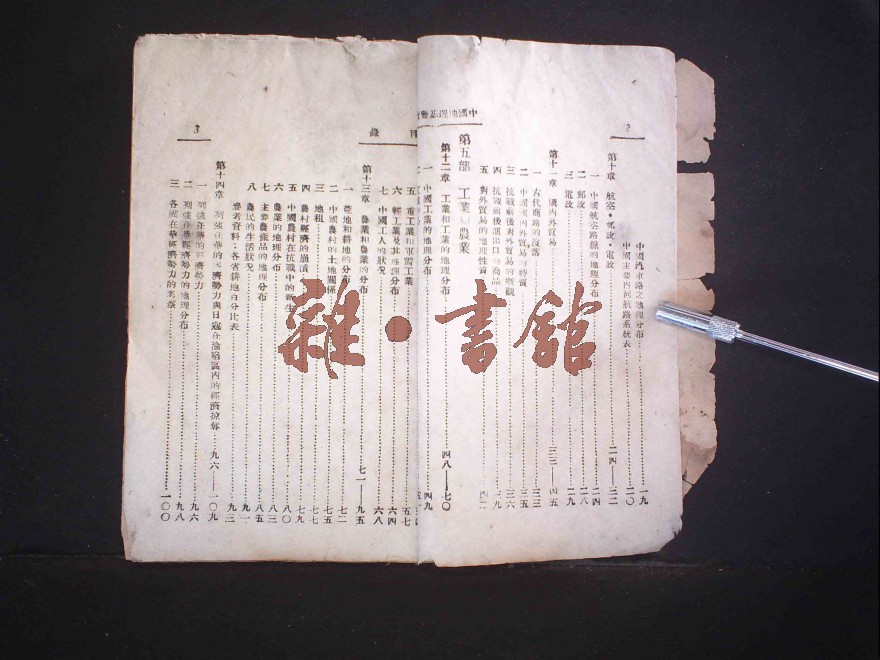 2
中國汽車路之地理分布 一九
中國主要內河航路系統表 二〇
第十章 航空・郵政・電政 二四——三二
一 中國航空路線的地理分布 二四
二 郵政 二八
三 電政 二九
第十一章 國內外貿易 三三——四五
一 古代商路的沒落 三三
二 中國國內外貿易的特質 三五
三 抗戰前後對外貿易的概觀 三六
四 抗戰前後進出口的商品 三九
五 對外貿易的地理性質 四二
第五部 工業與農業
第十二章 工業和工業的地理分布 四八——七〇
一 中國工業的地理分布 四九
中國地理基礎教
目錄
五 重工業和軍需工業 五七
六 輕工業及其地理分布 六四
七 中國工人的狀況 六八
第十三章 農業和農業的分布 七一——九五
一 荒地和耕地的分布 七二
二 中國農村的土地關係 七五
三 地租 七七
四 農村經濟的崩潰 七九
五 中國農村在抗戰中的新生 八〇
六 農業的地理分布 八三
七 主要農產品的地理分布 八五
八 農民的生活狀況 九一
參考資料：各省耕地百分比表 九三
第十四章 列強在華的經濟勢力與日寇在淪陷區內的經濟掠奪 九六——一〇九
一 列強在華的經濟勢力 九六
二 列強在華經濟勢力的地理分布 九八
三 各國在華經濟勢力的考察 一〇〇
3
雜・書館